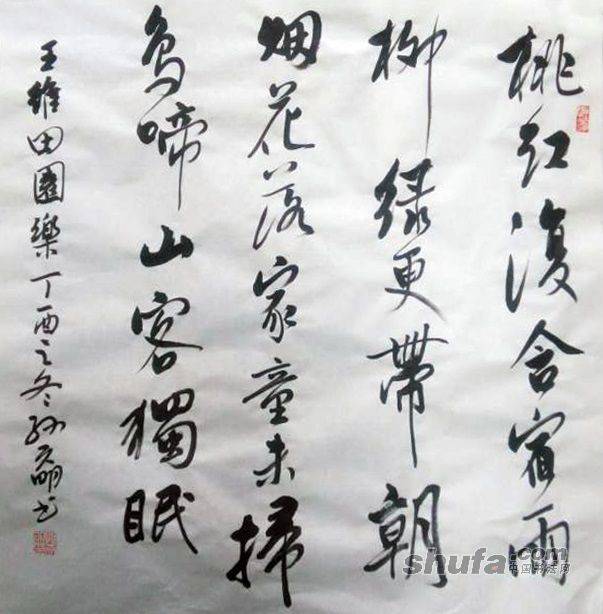 桃红復含宿雨
柳绿更帶朝
烟花落家童未掃
鸟啼山客獨眠
王維田園樂丁酉之冬孙
shufa.com
中国书法网